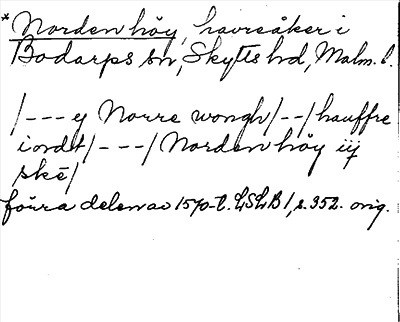 * Norden höy, havreåker i
Bodarps sn, Skytts hd, Malm. l.
/--- ey Norre wongh/--/hauffre
iordt/---/Norden höy iij
skē/
förra delen av 1570-t. LSLB 1, s. 352. orig.